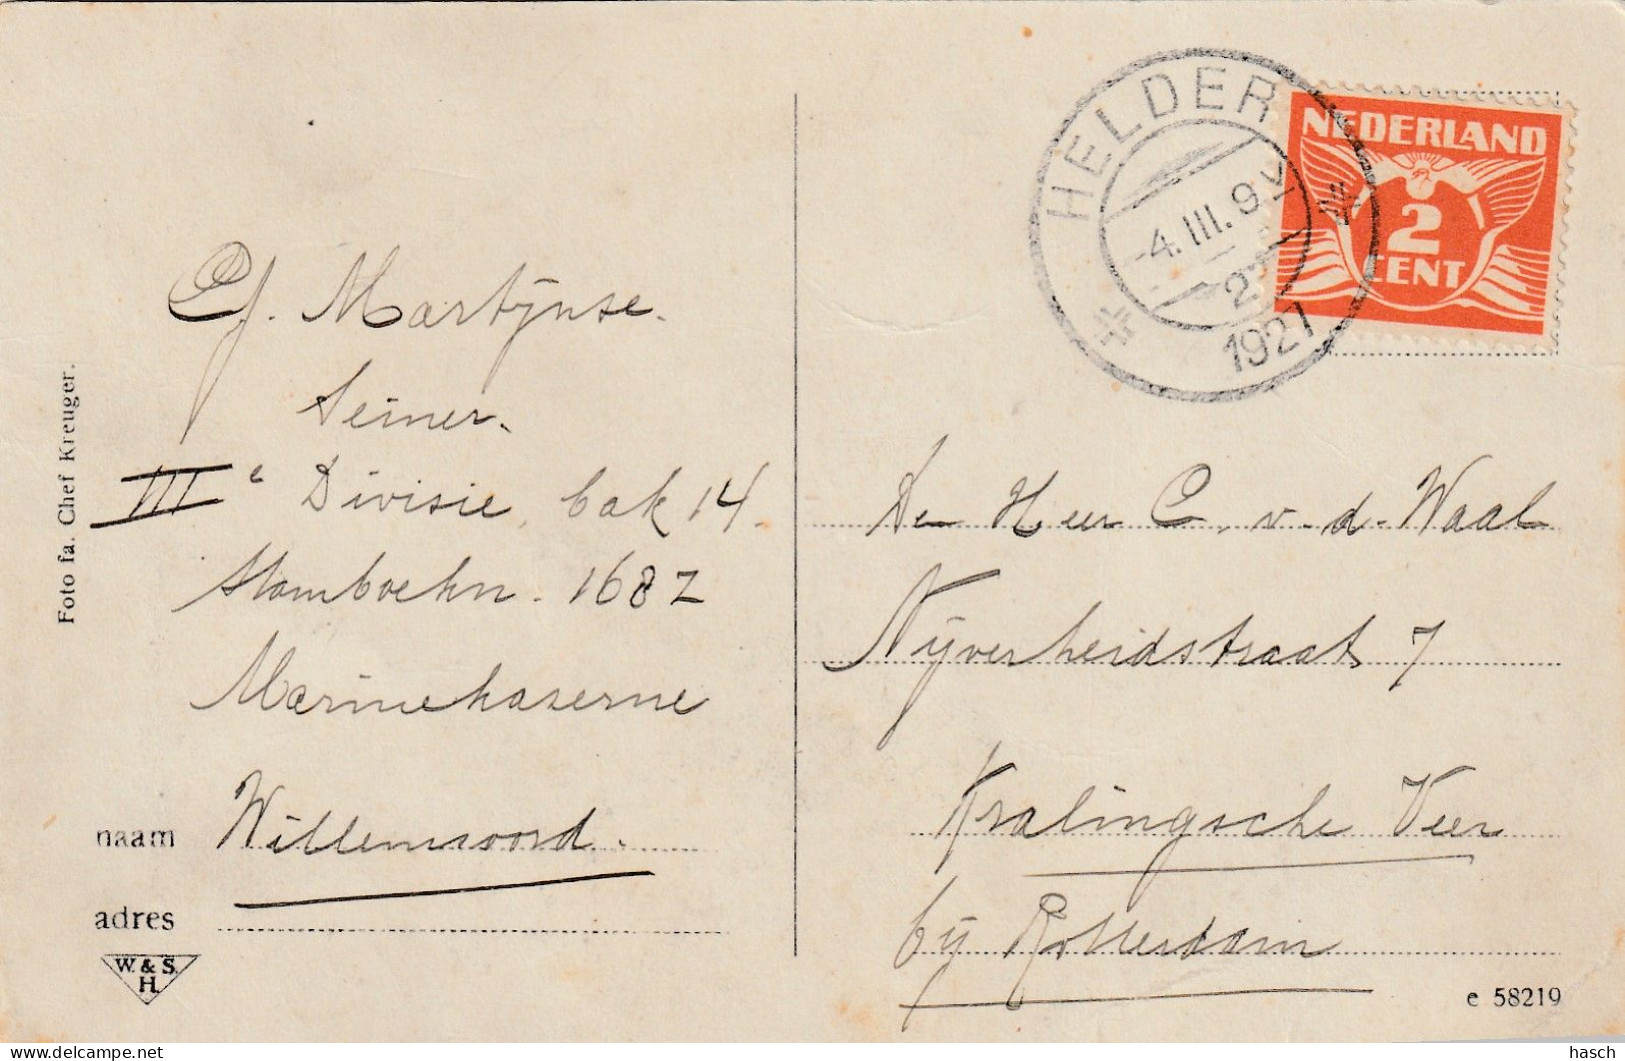 Foto fa. Chef Kreuger.
Martijnse.
Seiner.
IIIe Divisie, bak 14.
Stamboekn. 1682
Marinekazerne
Willemsoord.
naam
adres
W. & S.
H.
HELDER
-4.III.9 V
1927
NEDERLAND
2
CENT
De Heer C. v. d. Waal
Nijverheidstraat 7
Kralingsche Veer
bij Rotterdam
e 58219
hasch
delcampe.net